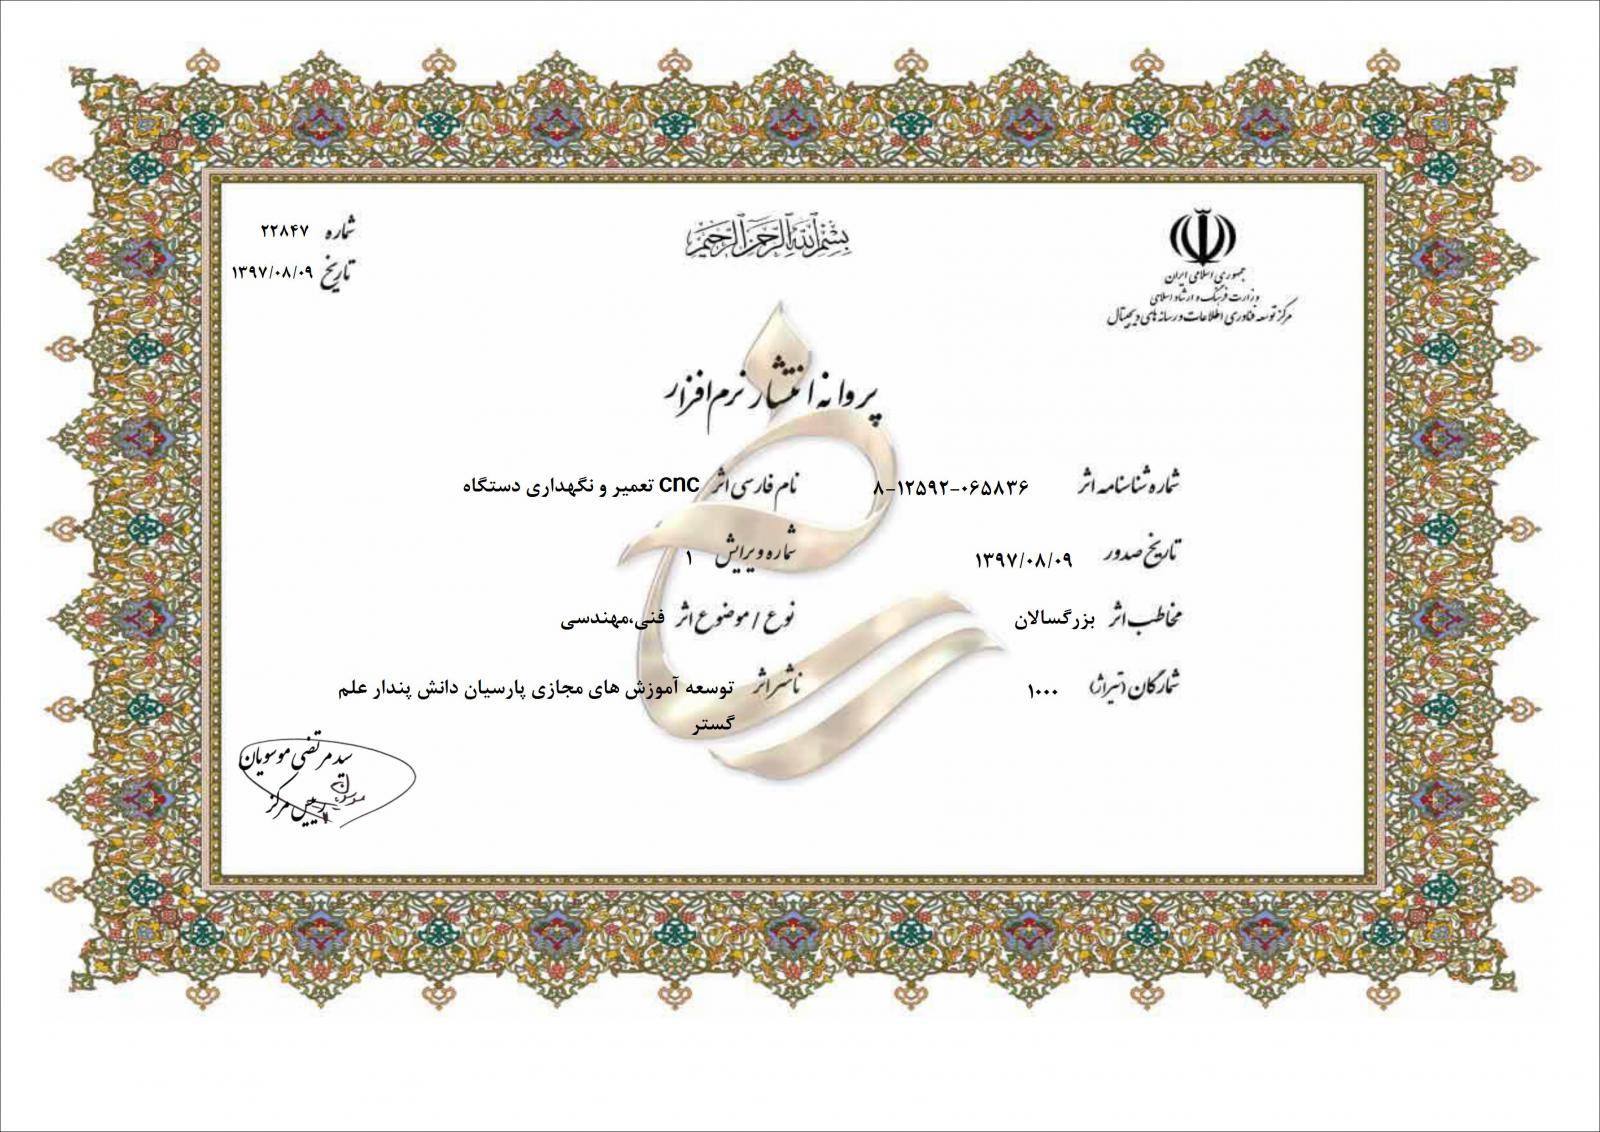 بسم الله الرحمن الرحیم
جمهوری اسلامی ایران
وزارت فرهنگ و ارشاد اسلامی
مرکز توسعه فناوری اطلاعات و رسانه های دیجیتال
شماره ۲۲۸۴۷
تاریخ ۱۳۹۷/۰۸/۰۹
پروانه انتشار نرم افزار
شماره شناسنامه اثر ۸-۱۲۵۹۲-۰۶۵۸۳۶
نام فارسی اثر cnc تعمیر و نگهداری دستگاه
تاریخ صدور ۱۳۹۷/۰۸/۰۹
شماره ویرایش ۱
مخاطب اثر بزرگسالان
نوع / موضوع اثر فنی،مهندسی
شمارگان (تیراژ) ۱۰۰۰
ناشر اثر توسعه آموزش های مجازی پارسیان دانش پندار علم
گستر
سید مرتضی موسویان
رییس مرکز